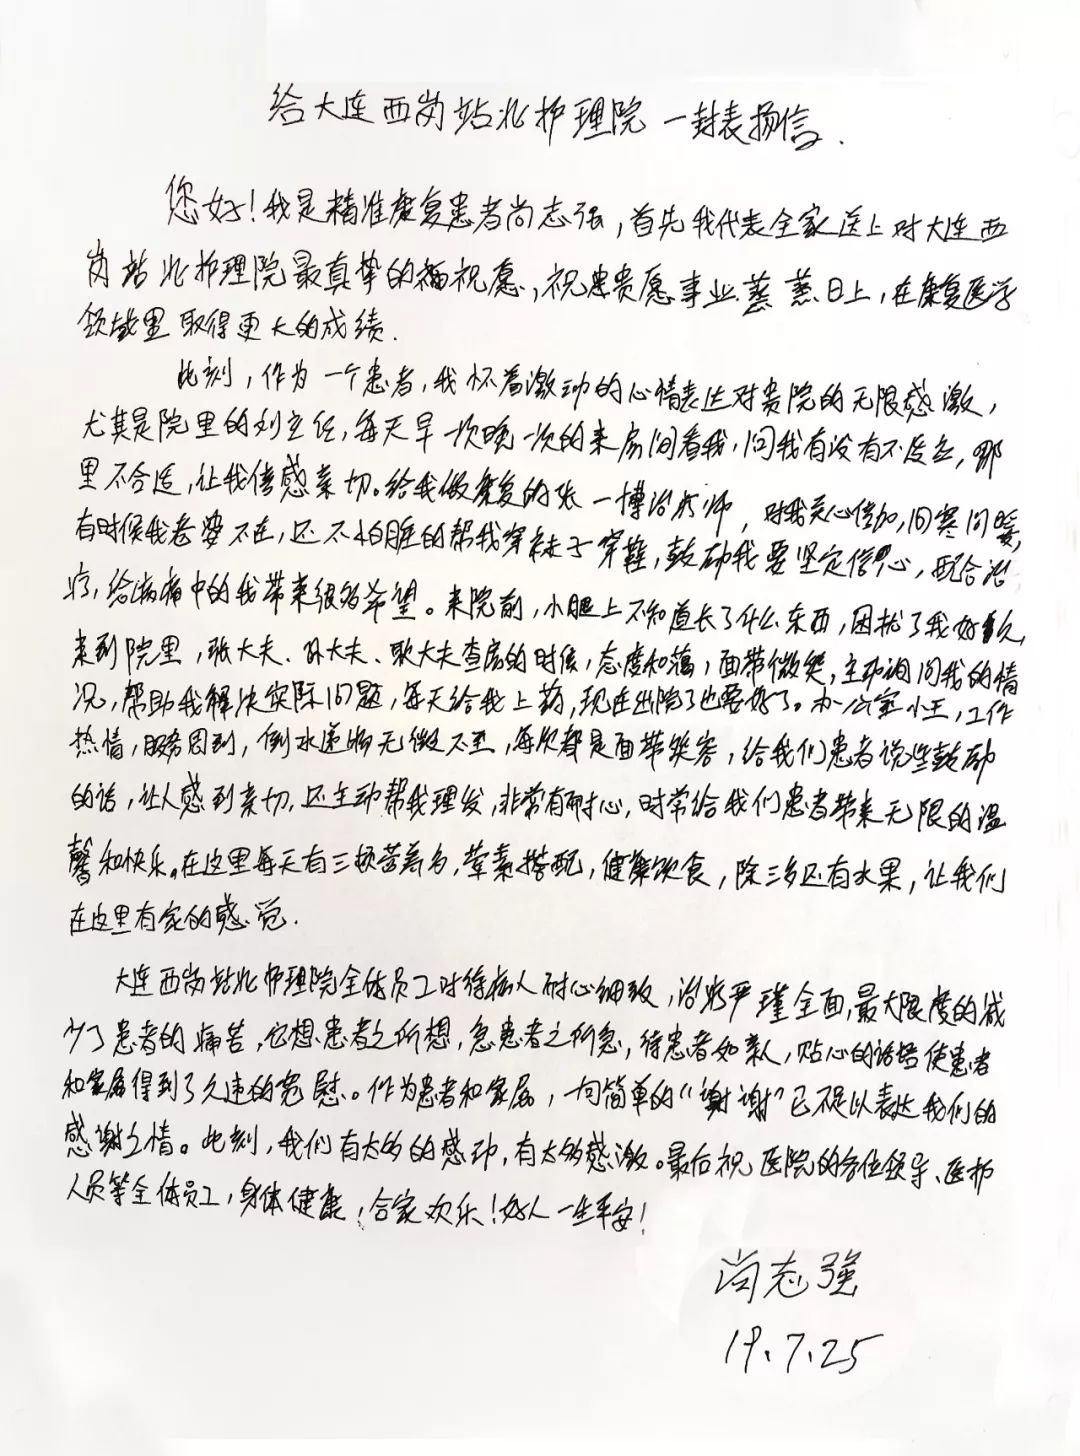 给大连西岗站北护理院一封表扬信.
您好！我是精准康复患者尚志强，首先我代表全家送上对大连西
岗站北护理院最真挚的福祝愿，祝愿贵愿事业蒸蒸日上，在康复医学
领域里取得更大的成绩.
此刻，作为一个患者，我怀着激动的心情表达对贵院的无限感激，
尤其是院里的刘主任，每天早一次晚一次的来房间看我，问我有没有不适应，哪
里不合适，让我倍感亲切。给我做康复的张一博治疗师，对我关心倍加，问寒问暖，
有时候我老婆不在，还不怕脏的帮我穿袜子穿鞋，鼓励我要坚定信心，配合治
疗，给病痛中的我带来很多希望。来院前，小腿上不知道长了什么东西，困扰了我好久，
来到院里，张大夫、孙大夫、耿大夫查房的时候，态度和蔼，面带微笑，主动询问我的情
况，帮助我解决实际问题，每天给我上药，现在出院了也要好了。办公室小王，工作
热情，服务周到，倒水递物无微不至，每次都是面带笑容，给我们患者说些鼓励
的话，让人感到亲切，还主动帮我理发，非常有耐心，时常给我们患者带来无限的温
馨和快乐。在这里每天有三顿营养多，荤素搭配，健康饮食，除三多还有水果，让我们
在这里有家的感觉.
大连西岗站北护理院全体员工对待病人耐心细致，治疗严瑾全面，最大限度的减
少了患者的痛苦，想患者之所想，急患者之所急，待患者如亲人，贴心的话语使患者
和家属得到了久违的宽慰。作为患者和家属，一句简单的“谢谢”已不足以表达我们的
感谢之情。此刻，我们有太多的感动，有太多感激。最后祝医院的各位领导、医护
人员等全体员工，身体健康，合家欢乐！好人一生平安！
尚志强
19.7.25